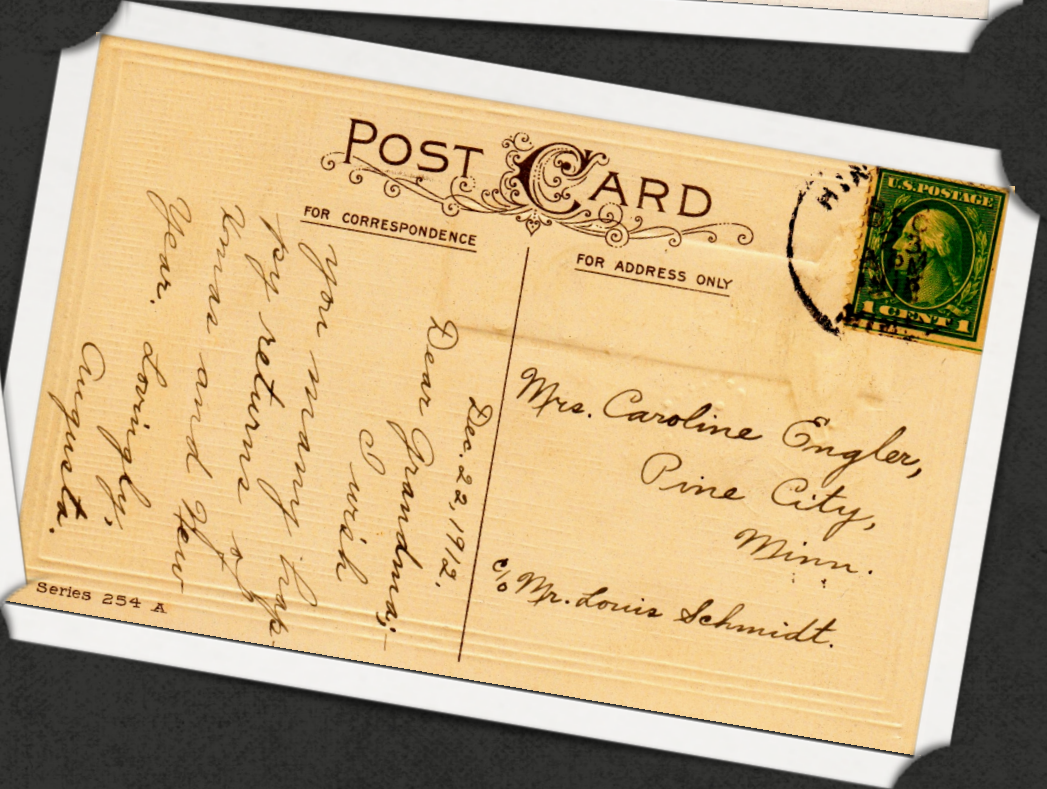 POST CARD
FOR CORRESPONDENCE
FOR ADDRESS ONLY
U.S. POSTAGE
1 CENT 1
DEC
Dec. 22, 1912.
Dear Grandma;-
I wish
you many hap-
py returns of
Xmas and New
Year.
Lovingly,
Augusta.
Mrs. Caroline Engler,
Pine City,
Minn.
c/o Mr. Louis Schmidt.
Series 254 A